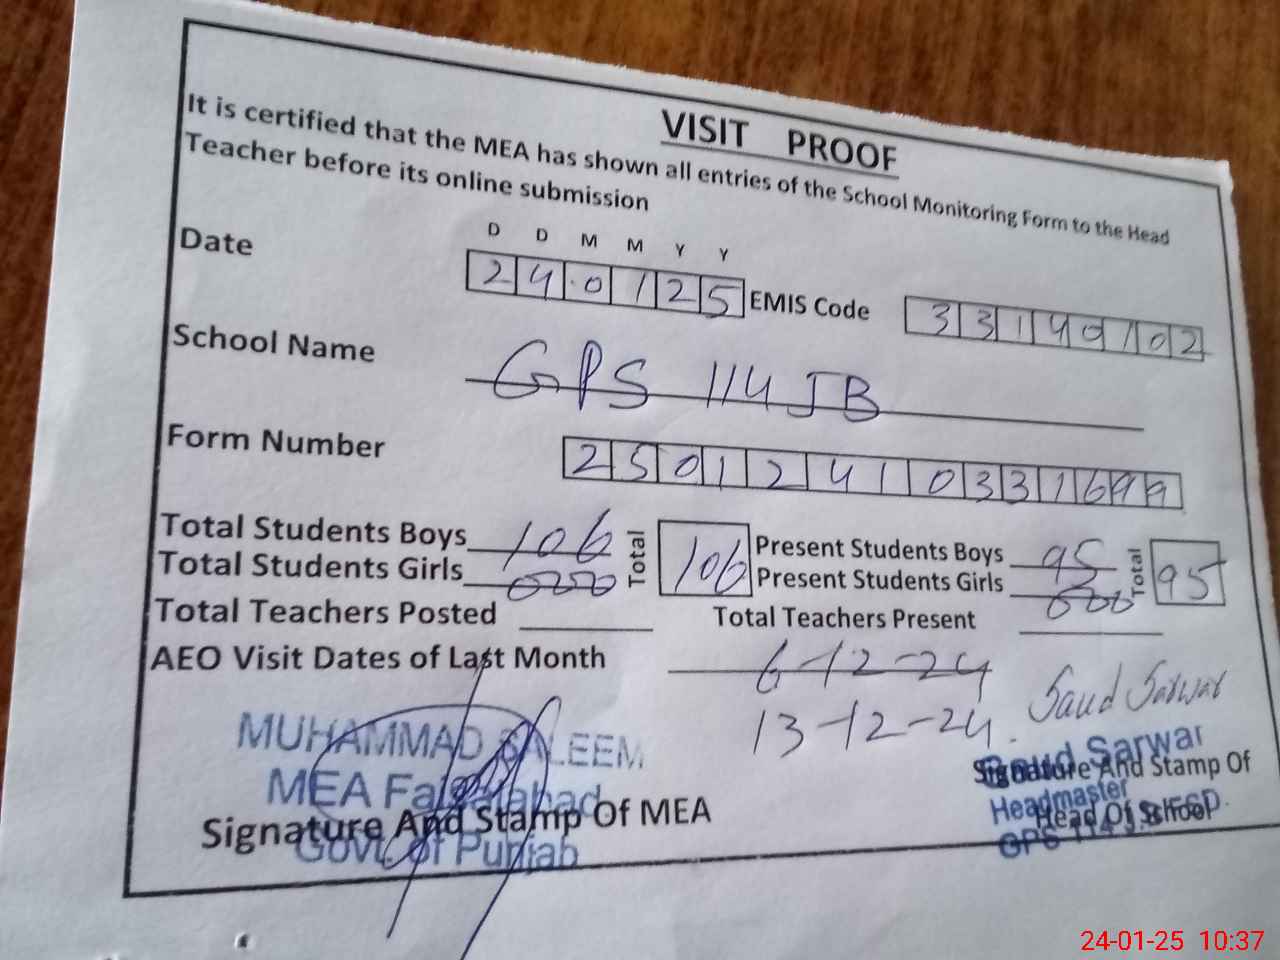 VISIT PROOF
It is certified that the MEA has shown all entries of the School Monitoring Form to the Head
Teacher before its online submission
D D M M Y Y
Date 240125 EMIS Code 33140102
School Name GPS 114 JB
Form Number 25012410331699
Total Students Boys 106 Total 106 Present Students Boys 95 Total 95
Total Students Girls 000 Present Students Girls 000
Total Teachers Posted Total Teachers Present
AEO Visit Dates of Last Month 6-12-24
13-12-24.
Saud Sarwar
MUHAMMAD SALEEM
MEA Faisalabad
Govt. of Punjab
Signature And Stamp Of MEA
Saud Sarwar
Headmaster
GPS 114 J.B FSD.
Signature And Stamp Of
Head Of School
24-01-25 10:37